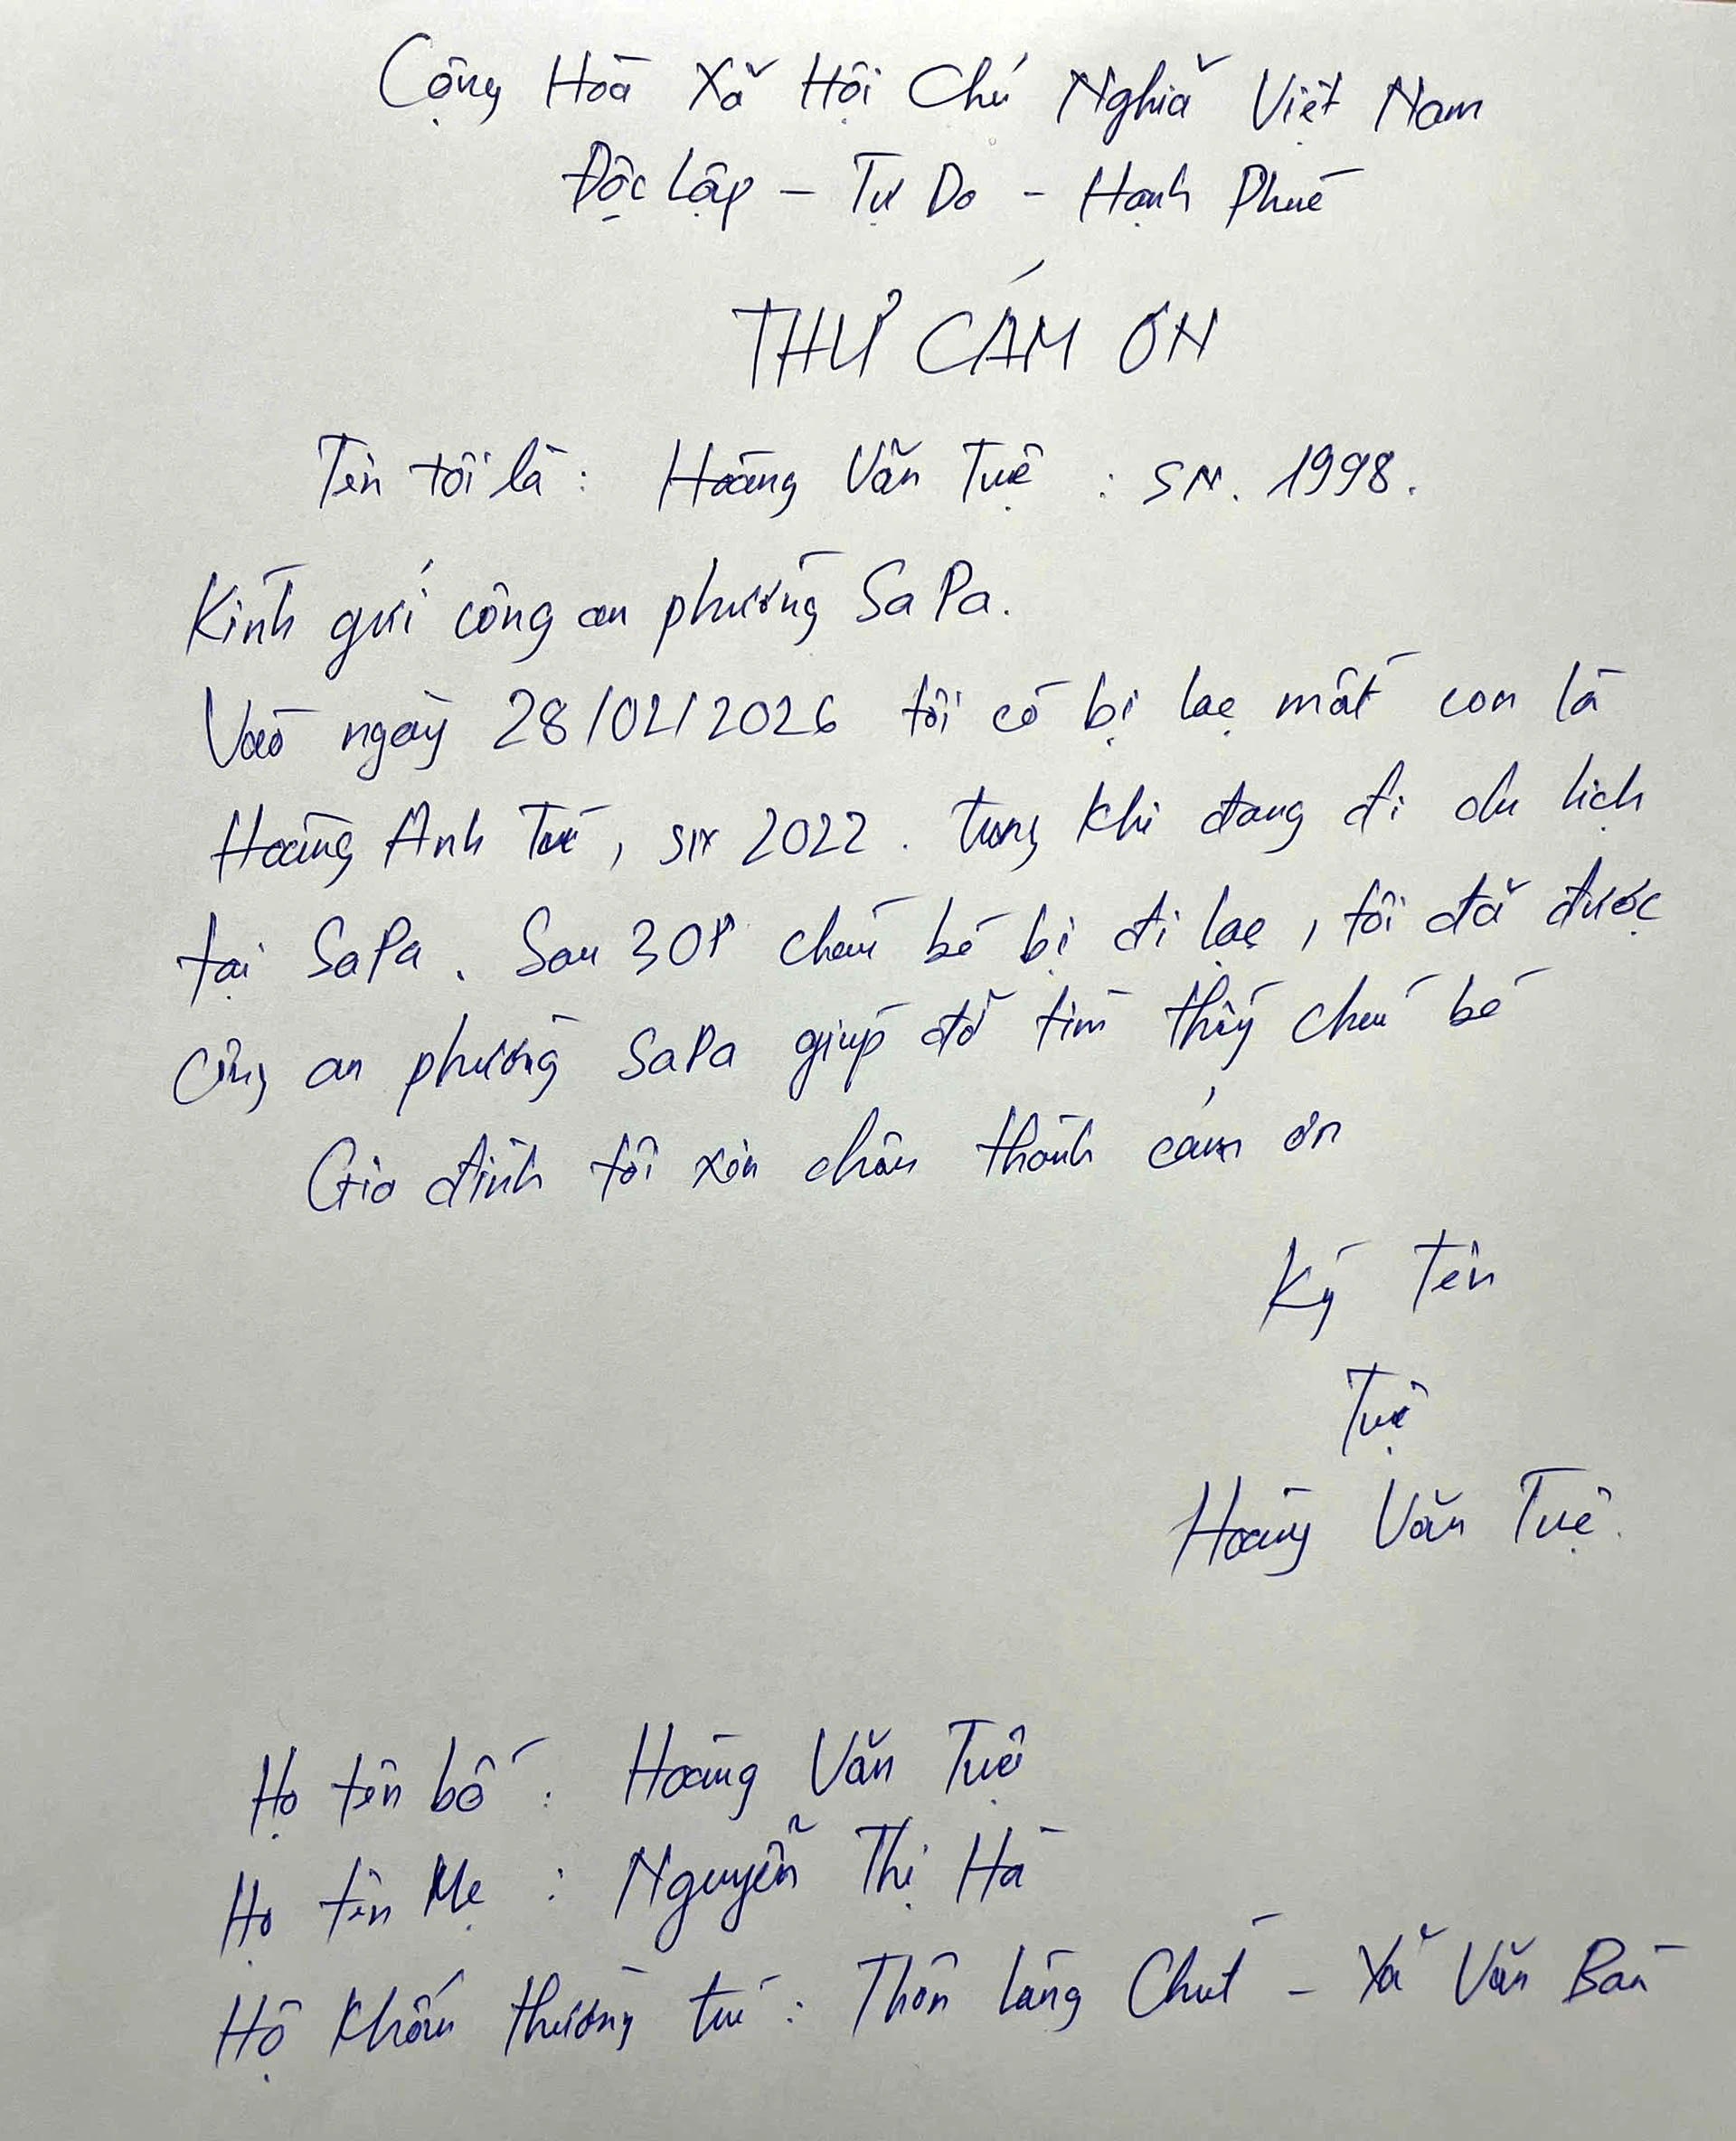 Cộng Hòa Xã Hội Chủ Nghĩa Việt Nam
Độc Lập - Tự Do - Hạnh Phúc
THƯ CẢM ƠN
Tên tôi là : Hoàng Văn Tuệ : SN. 1998.
Kính gửi công an phường Sa Pa.
Vào ngày 28/02/2026 tôi có bị lạc mất con là
Hoàng Anh Tú, sn 2022. trong khi đang đi du lịch
tại SaPa. Sau 30P cháu bé bị đi lạc, tôi đã được
công an phường SaPa giúp đỡ tìm thấy cháu bé
Gia đình tôi xin chân thành cảm ơn
Ký Tên
Tuệ
Hoàng Văn Tuệ.
Họ tên bố : Hoàng Văn Tuệ
Họ tên Mẹ : Nguyễn Thị Hà
Hộ khẩu thường trú : Thôn Làng Chút - Xã Văn Bàn